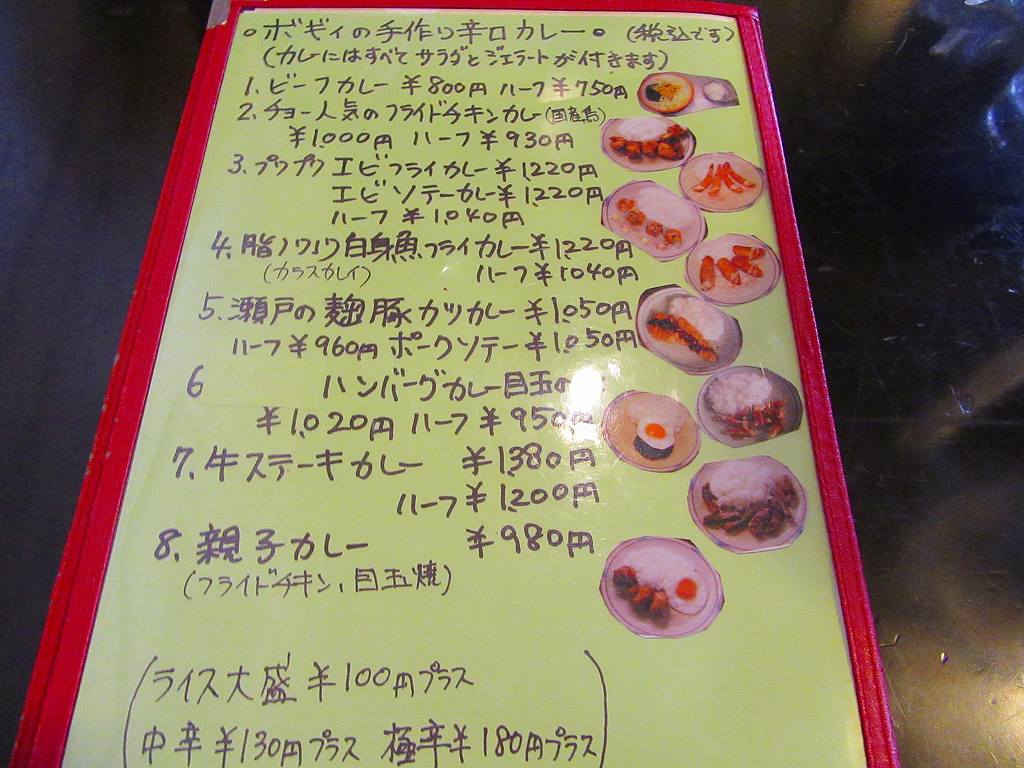 。ボギィの手作り辛口カレー。(税込です)
(カレーにはすべてサラダとジェラートが付きます)
1. ビーフカレー ¥800円 ハーフ¥750円
2. チョー人気のフライドチキンカレー(国産鳥)
¥1000円 ハーフ ¥930円
3. プリプリ エビフライカレー¥1220円
エビソテーカレー¥1220円
ハーフ ¥1040円
4. 脂ノリノリ白身魚フライカレー¥1,220円
(カラスカレイ) ハーフ¥1040円
5. 瀬戸の麹豚カツカレー ¥1050円
ハーフ¥960円 ポークソテー¥1,050円
6 ハンバーグカレー目玉の
¥1,020円 ハーフ ¥950円
7. 牛ステーキカレー ¥1,380円
ハーフ¥1,200円
8. 親子カレー ¥980円
(フライドチキン、目玉焼)
(ライス大盛 ¥100円プラス
中辛¥130円プラス 極辛¥180円プラス)